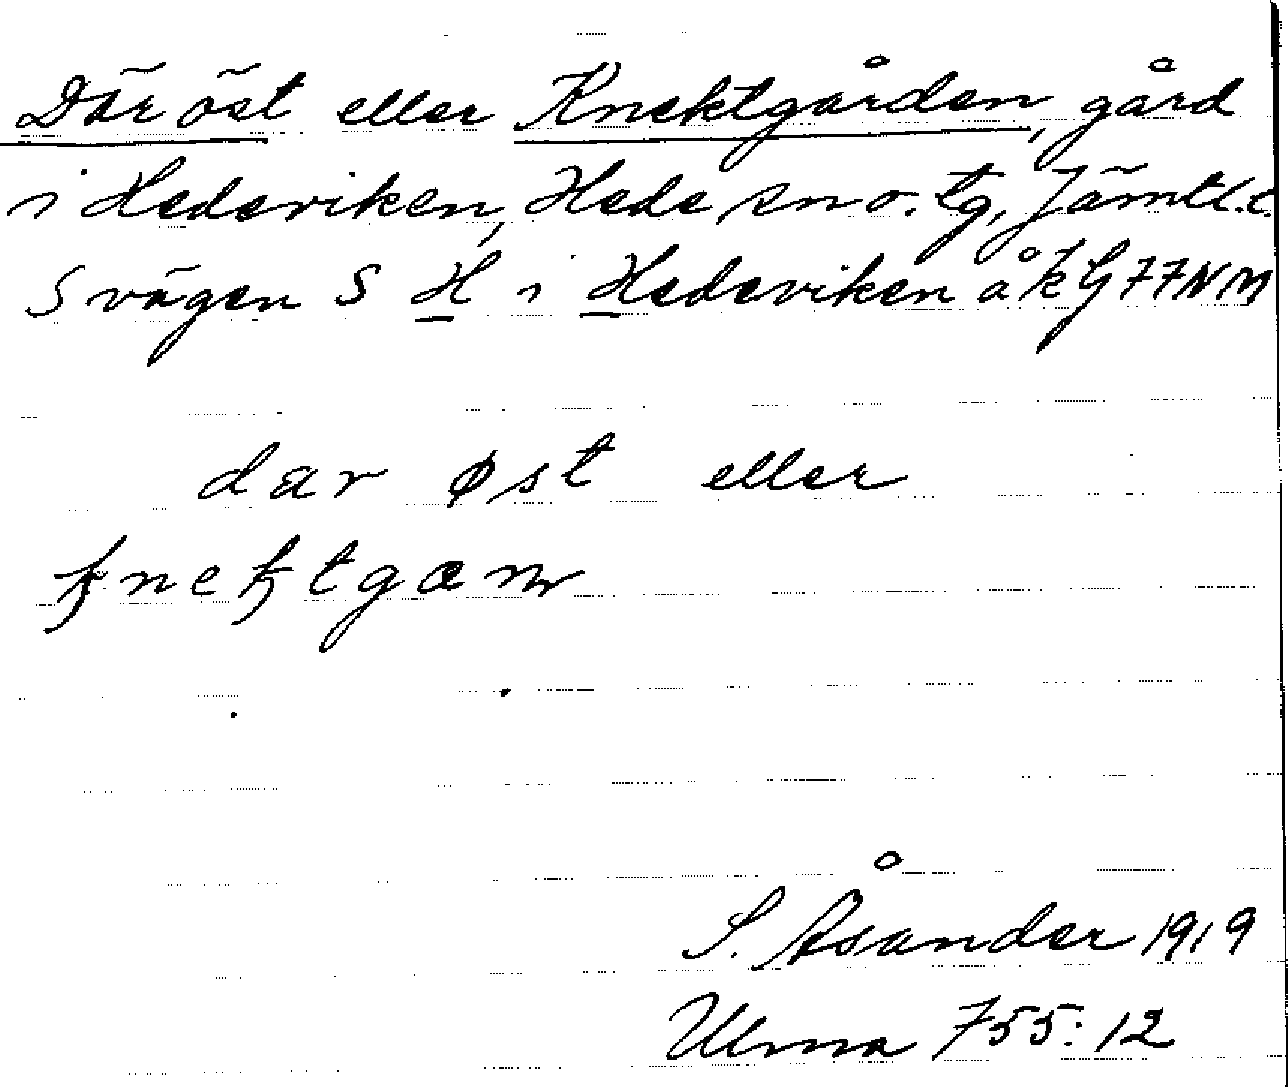 Där öst eller Knektgården, gård
i Hedeviken, Hede sn o. tg, Jämtl.l.
S vägen S H i Hedeviken å k G 77NM
dar øst eller
knektgæṇ
S. Åsander 1919
Ulma 755:12